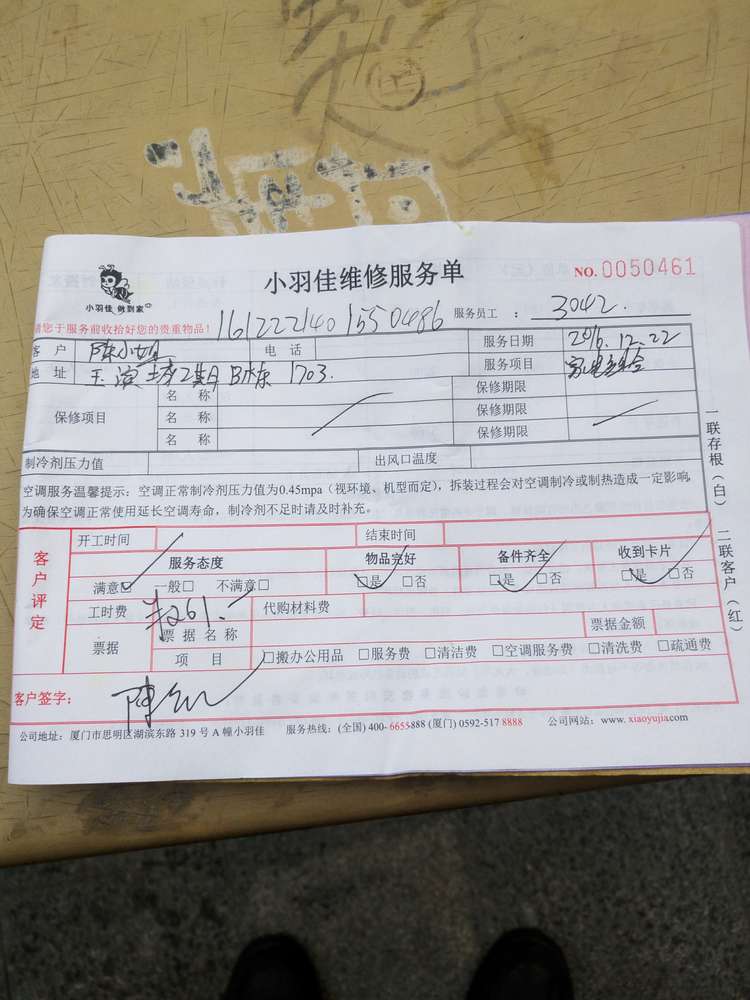 小羽佳维修服务单
NO. 0050461
小羽佳 做到家
请您于服务前收拾好您的贵重物品!
1612221401550486
服务员工 : 3042.
客户 陈小姐 电话 服务日期 2016.12.22
地址 B栋 1703. 服务项目
保修项目 名称 保修期限
名称 保修期限
名称 保修期限
制冷剂压力值 出风口温度
空调服务温馨提示:空调正常制冷剂压力值为0.45mpa(视环境、机型而定),拆装过程会对空调制冷或制热造成一定影响,
为确保空调正常使用延长空调寿命,制冷剂不足时请及时补充。
一联存根(白) 二联客户(红)
客户评定
开工时间 结束时间
服务态度 物品完好 备件齐全 收到卡片
满意☑ 一般□ 不满意□ ☑是 □否 ☑是 □否 ☑是 □否
工时费 ¥261.- 代购材料费
票据 票据名称 票据金额
项目 □搬办公用品 □服务费 □清洁费 □空调服务费 □清洗费 □疏通费
客户签字:
公司地址:厦门市思明区湖滨东路 319 号 A 幢小羽佳 服务热线:(全国) 400-6655888 (厦门) 0592-517 8888 公司网站:www.xiaoyujia.com